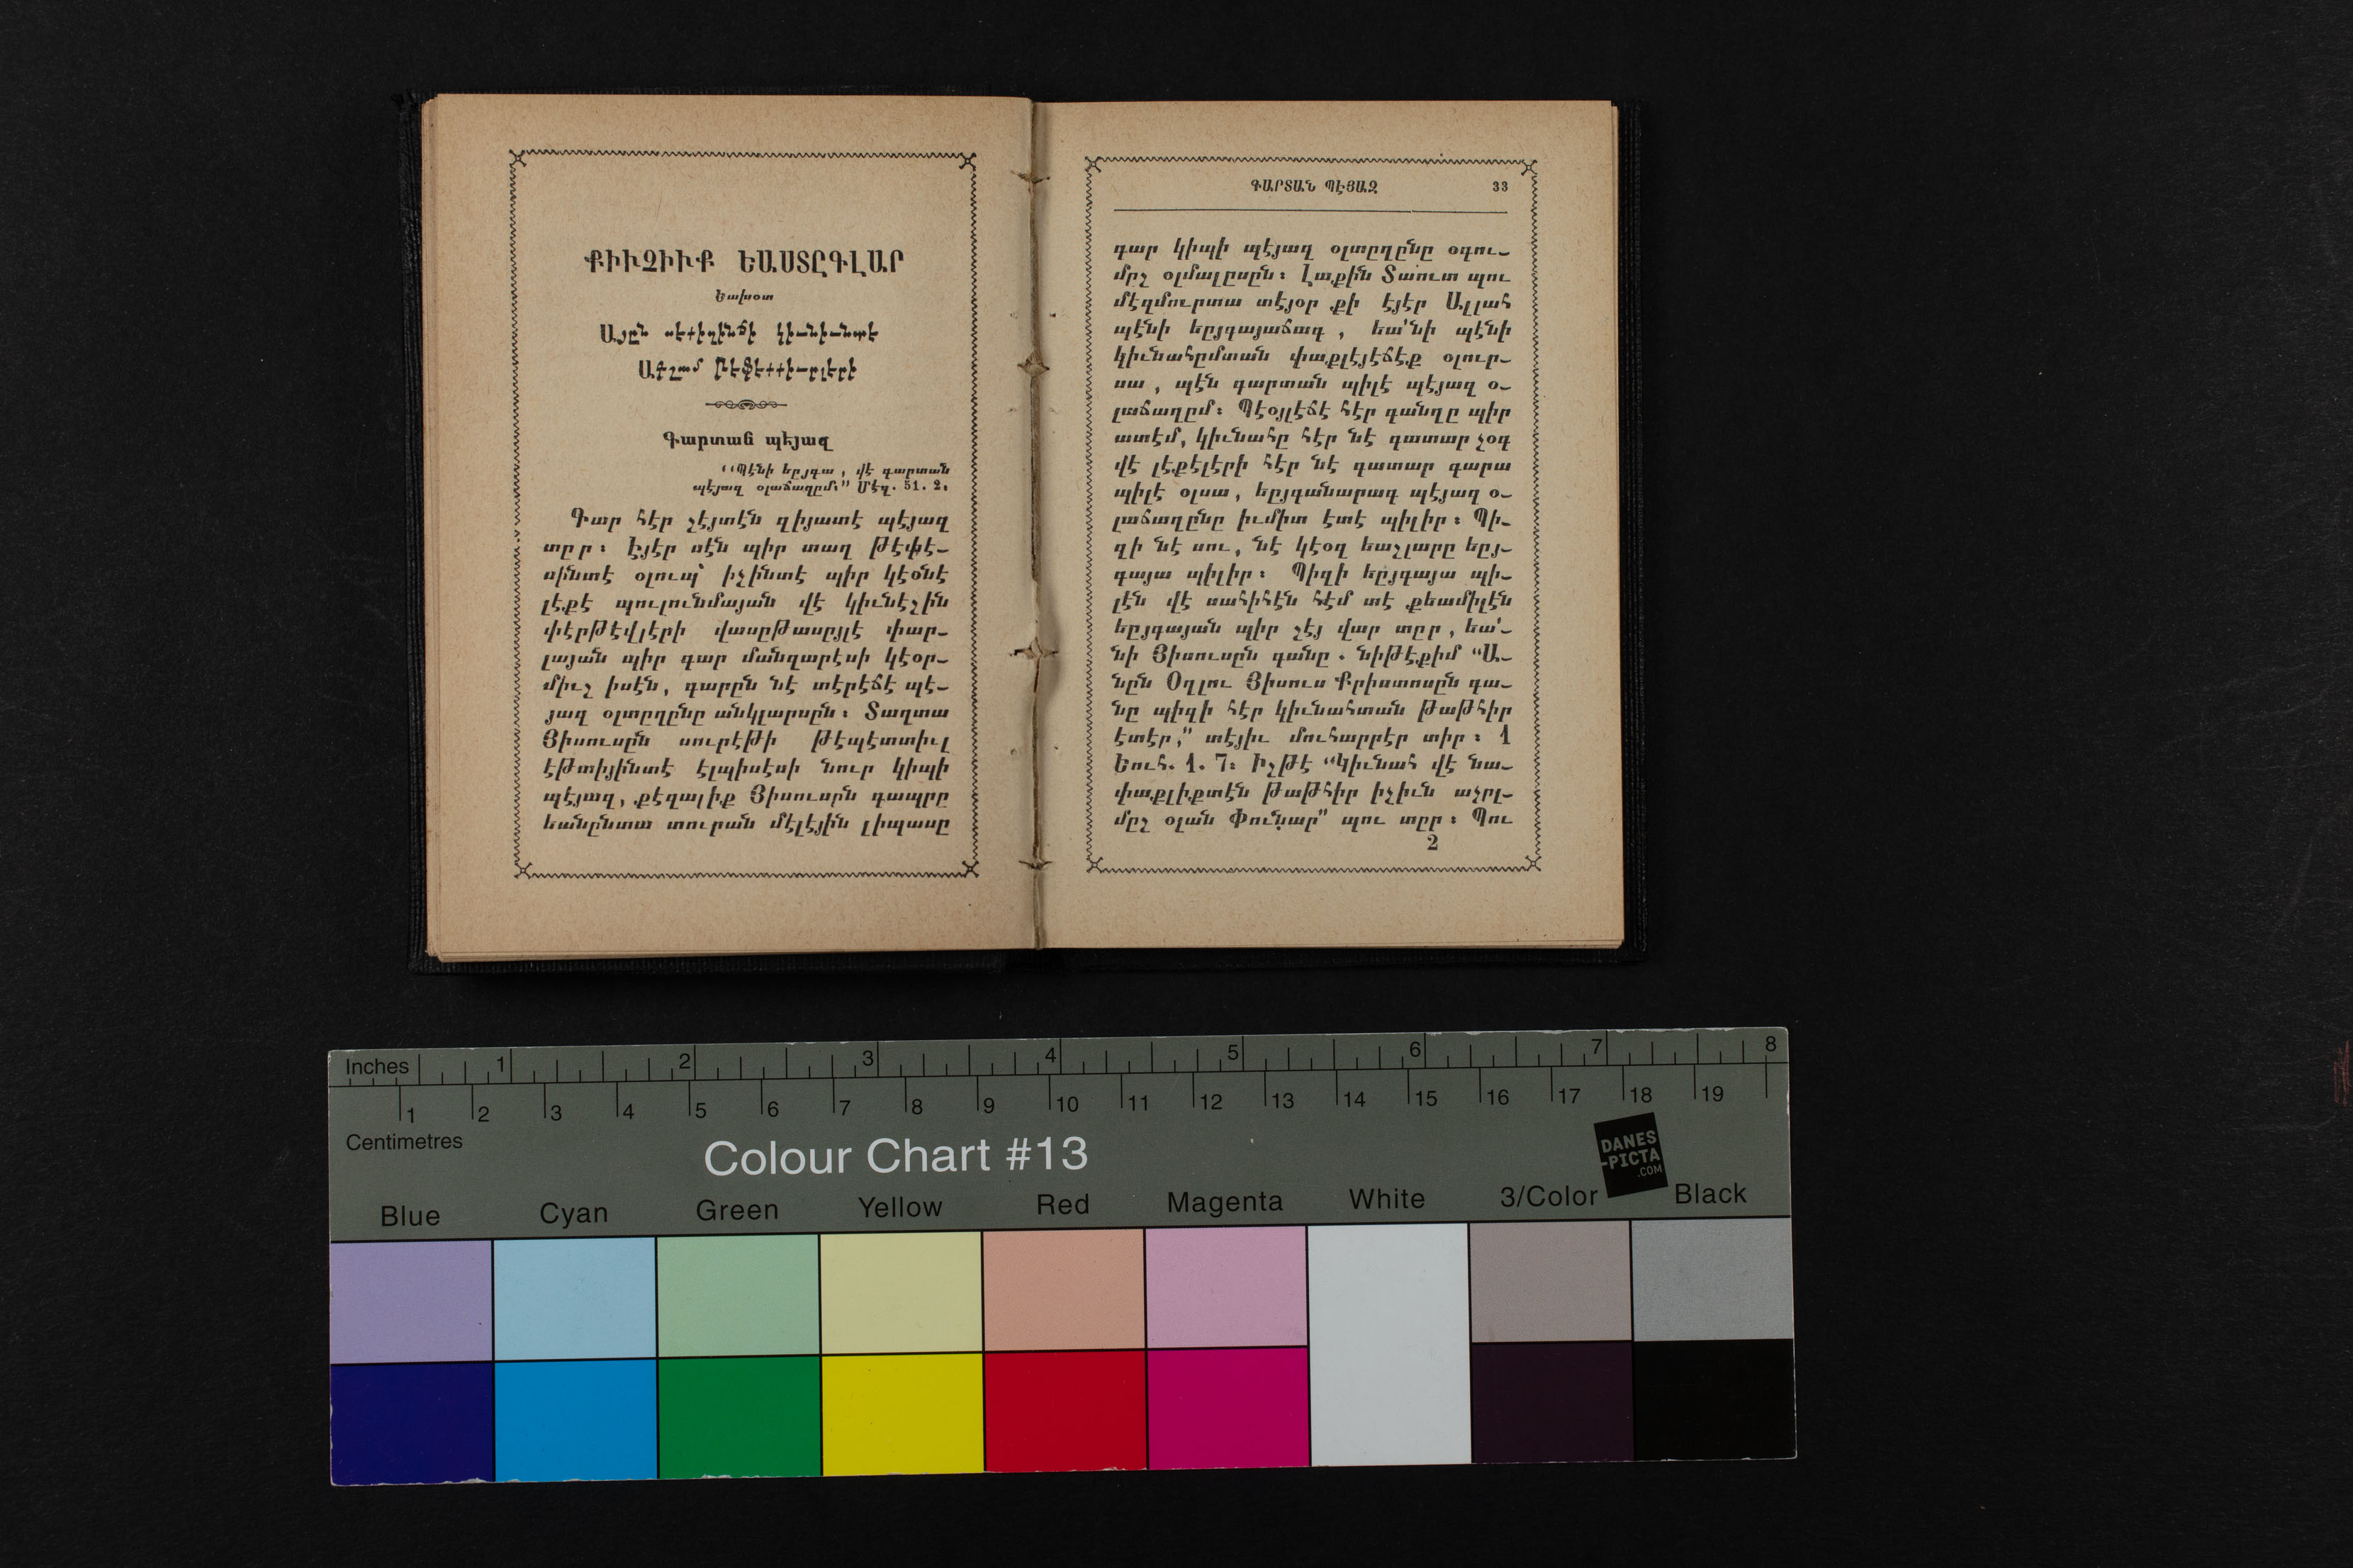 ՔԻՒՉԻՒՔ ԵԱՍՏԸԳԼԱՐ
Եախօտ
Այըն սէքիզինճի կիւնիւնտէ
Ախշամ Թէֆէքքիւրլերի
Գարտան պէյազ
‘‘Պէնի երյգա, վէ գարտան
պէյազ օլաճաղըմ։” Մէզ. 51. 2։
Գար հէր չէյտէն զիյատէ պէյազ
տըր։ Էյէր սէն պիր տաղ թէփէ–
սինտէ օլուպ՝ իչինտէ պիր կէօնէ
լէքէ պուլունմայան վէ կիւնէշին
փէրթէվլէրի վասըթասըյլէ փար–
լայան պիր գար մանզարէսի կէօր–
միւշ իսէն, գարըն նէ տէրէճէ պէ–
յազ օլտըղընը անկլարսըն։ Տաղտա
Յիսուսըն սուրէթի թէպէտտիւլ
էթտիյինտէ էլպիսէսի նուր կիպի
պէյազ, քէզալիք Յիսուսըն գապրը
եանընտա տուրան մէլէյին լիպասը
ԳԱՐՏԱՆ ՊԷՅԱԶ 33
գար կիպի պէյազ օլտըղընը օգու–
մըշ օլմալըսըն։ Լաքին Տաուտ պու
մէզմուրտա տէյօր քի էյէր Ալլահ
պէնի երյգայաճագ, եա՛նի պէնի
կիւնահըմտան փաքլէյէճէք օլուր–
սա, պէն գարտան պիլէ պէյազ օ–
լաճաղըմ։ Պէօյլէճէ հէր գանղը պիր
ատէմ, կիւնահը հէր նէ գատար չօգ
վէ լէքէլէրի հէր նէ գատար գարա
պիլէ օլսա, երյգանարագ պէյազ օ–
լաճաղընը իւմիտ էտէ պիլիր։ Պի–
զի նէ սու, նէ կէօզ եաշլարը երյ–
գայա պիլիր։ Պիզի երյգայա պի–
լէն վէ սահիհէն հէմ տէ քեամիլէն
երյգայան պիր շէյ վար տըր, եա՛–
նի Յիսուսըն գանը. նիթէքիմ “Ա–
նըն Օղլու Յիսուս Քրիստոսըն գա–
նը պիզի հէր կիւնահտան թաթհիր
էտէր,” տէյիւ մուհարրէր տիր։ 1
Եուհ. 1. 7։ Իշթէ “Կիւնահ վէ նա–
փաքլիքտէն թաթհիր իչիւն աչըլ–
մըշ օլան Փունար” պու տըր։ Պու
2
Inches 1 2 3 4 5 6 7 8
1 2 3 4 5 6 7 8 9 10 11 12 13 14 15 16 17 18 19
Centimetres
Colour Chart #13
DANES
-PICTA
.COM
Blue Cyan Green Yellow Red Magenta White 3/Color Black